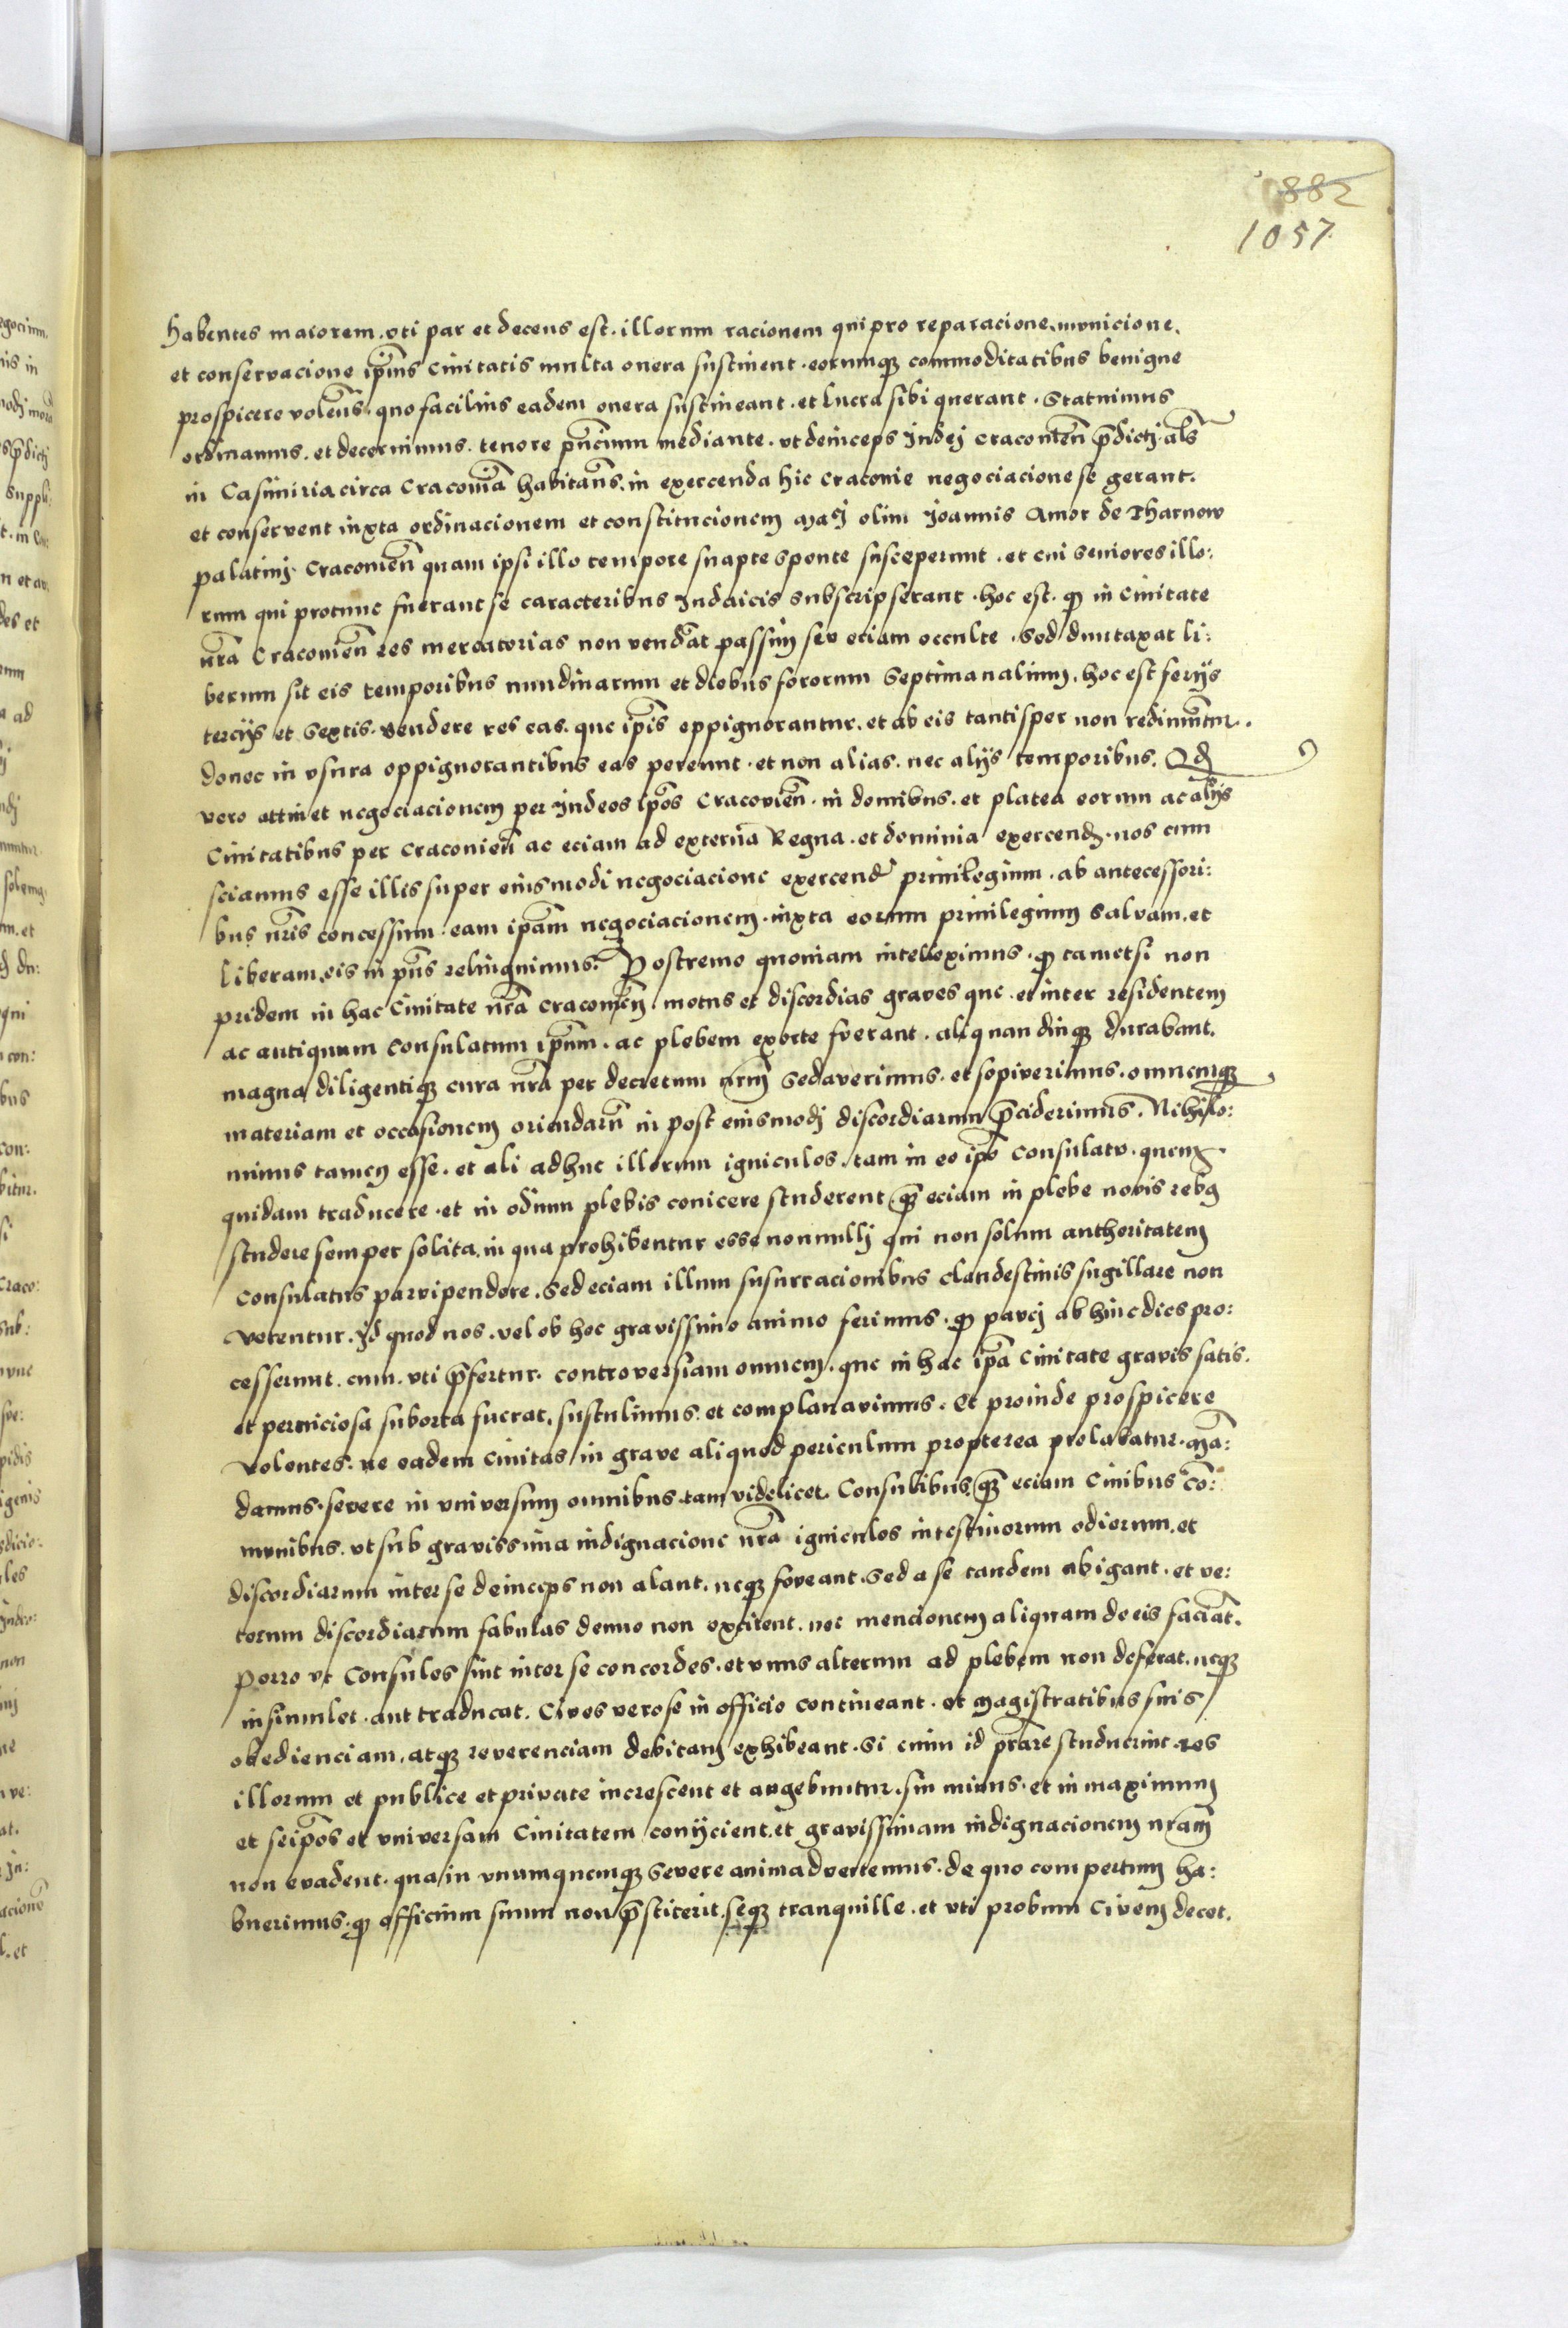 882
1057
habentes maiorem. vti par et decens est. illorum racionem qui pro reparacione. municione.
et conservacione ip̄ius Civitatis multa onera sustinent. eorumq; commoditatibus benigne
prospicere volen̄s. quo facilius eadem onera sustineant. et lucra sibi querant. Statuimus
ordinamus. et decernimus. tenore pn̄cium mediante. vt deinceps Judej Cracovien̄ p̄dictj. al̄s
in Casimiria circa Cracoviā habitan̄s. in exercenda hic Cracovie negociacione se gerant.
et conservent iuxta ordinacionem et constitucionem Ma̅cj olim Joannis Amor de Tharnow
palatinj Cracovien̄ quam ipsi illo tempore suapte sponte susceperunt. et cui seniores illo:
rum qui protunc fuerant se caracteribus Judaicis subscripserant. hoc est. q̄ in Civitate
nr̄a Cracovien̄ res mercatorias non vendāt passim sev eciam occulte. sed duntaxat li:
berum sit eis temporibus nundinarum et diebus fororum Septimanalium. hoc est ferijs
tercijs et Sextis. vendere res eas. que ip̄is oppignorantur. et ab eis tantisper non redimūtur.
donec in vsura oppignorantibus eas pereunt. et non alias. nec alijs temporibus. Qd̄
vero attinet negociacionem per Judeos ip̄os Cracovien̄. in domibus. et platea eorum ac alijs
Civitatibus per Cracovien̄ ac eciam ad externa Regna. et dominia exercend̄. nos cum
sciamus esse illis super eiusmodi negociacione exercend̄ privilegium. ab antecessori:
bus nr̄is concessum. eam ip̄am negociacionem. iuxta eorum privilegium salvam. et
liberam. eis in pn̄s relinquimus. Postremo quoniam intelleximus. q̄ tametsi non
pridem in hac Civitate nr̄a Cracovien̄. motus et discordias graves que. et inter residentem
ac antiquum Consulatum ip̄um. ac plebem exorte fverant. aliquandiuq; durabant.
magna diligentiq; cura nr̄a per decretum nr̄m sedaverimus. et sopiverimus. omnemq;
materiam et occasionem oriendarū in post eiusmodj discordiarum p̄ciderimus. Nihilo:
minus tamen esse. et ali adhuc illorum igniculos. tam in eo ip̄o Consulatv. quem
quidam traducere. et in odium plebis conicere studerent q̄ eciam in plebe novis rebus
studere semper solita. in qua prohibentur esse nonnullj qui non solum authoritatem
Consulatus parvipendere. sed eciam illum susurracionibus clandestinis sugillare non
verentur. Id quod nos. vel ob hoc gravissimo animo ferimus. q̄ paucj ab hinc dies pro:
cesserunt. cum. vti p̄fertur. controversiam omnem. que in hac ip̄a Civitate gravis satis.
et perniciosa suborta fuerat. sustulimus. et complanavimus. Et proinde prospicere
volentes. ne eadem Civitas in grave aliquod periculum propterea prolabatur. Mā:
damus. severe in universum omnibus. tam videlicet Consulibus. q̄ eciam Civibus cō:
munibus. vt sub gravissima indignacione nr̄a igniculos intestinorum odiorum. et
discordiarum inter se deinceps non alant. neq; foveant. sed a se tandem abigant. et ve:
terum discordiarum fabulas denuo non excitent. nec mencionem aliquam de eis faciāt.
porro vt Consules sint inter se concordes. et vnus alterum ad plebem non deferat. neq;
insimulet. aut traducat. Cives vero se in officio contineant. et Magistratibus suis
obedienciam. atq; reverenciam debitam exhibeant. Si enim id pr̄are studuerint res
illorum et publice et private increscent et augebuntur. sin minus. et in maximum
et seip̄os et vniversam Civitatem conijcient. et gravissimam indignacionem nr̄am
non evadent. qua in vnumquemq; Severe animadvertemus. de quo compertum ha:
buerimus. q̄ officium suum non p̄stiterit. seq; tranquille. et vti probum Civem decet.